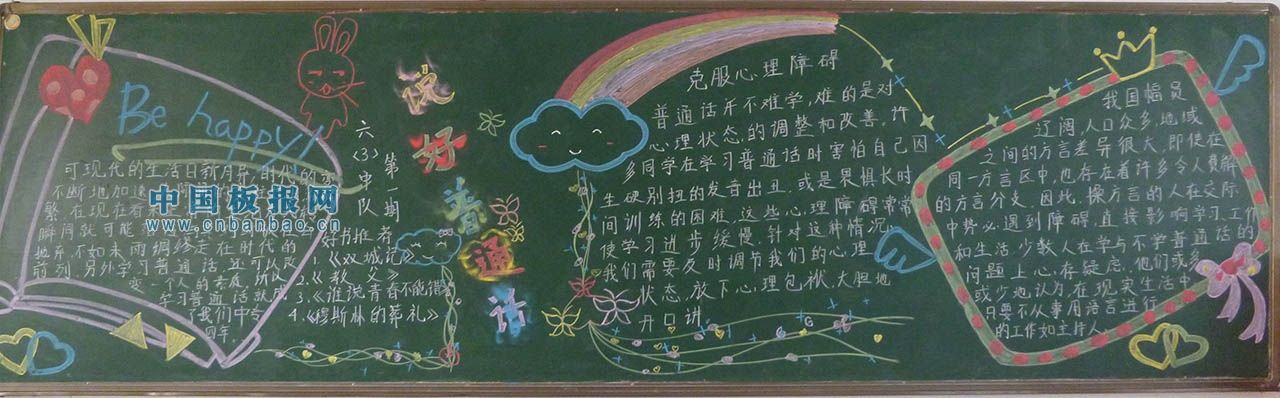 Be happy!
可现代的生活日新月异,时代的
不断地加速
繁 在现在看来
瞬间就可能
地弃,不如未雨绸缪走在时代的
前列,另外学习普通话还可以改
变一个人的素质,所以
学习普通话就成
了我们中专
四年。
中国板报网
www.cnbanbao.cn
六(3)中队
第一期
好书推荐
1.《双城记》
2.《教父》
3.《谁说青春不能错》
4.《穆斯林的葬礼》
说好普通话
克服心理障碍
普通话并不难学,难的是对
心理状态,的调整和改善。许
多同学在学习普通话时害怕自己因
生硬别扭的发音出丑,或是惧怕长时
间训练的困难,这些心理障碍常常
使学习进步缓慢,针对这种情况,
我们需要及时调节我们的心理
状态,放下心理包袱,大胆地
开口讲。
我国幅员
辽阔,人口众多,地域
之间的方言差异很大,即使在
同一方言区中,也存在着许多令人费解
的方言分支。因此,操方言的人在交际
中势必遇到障碍,直接影响学习、工作
和生活。少数人在学与不学普通话的
问题上心存疑虑,他们或多
或少地认为,在现实生活中
只要不从事用语言进行
的工作如主持人